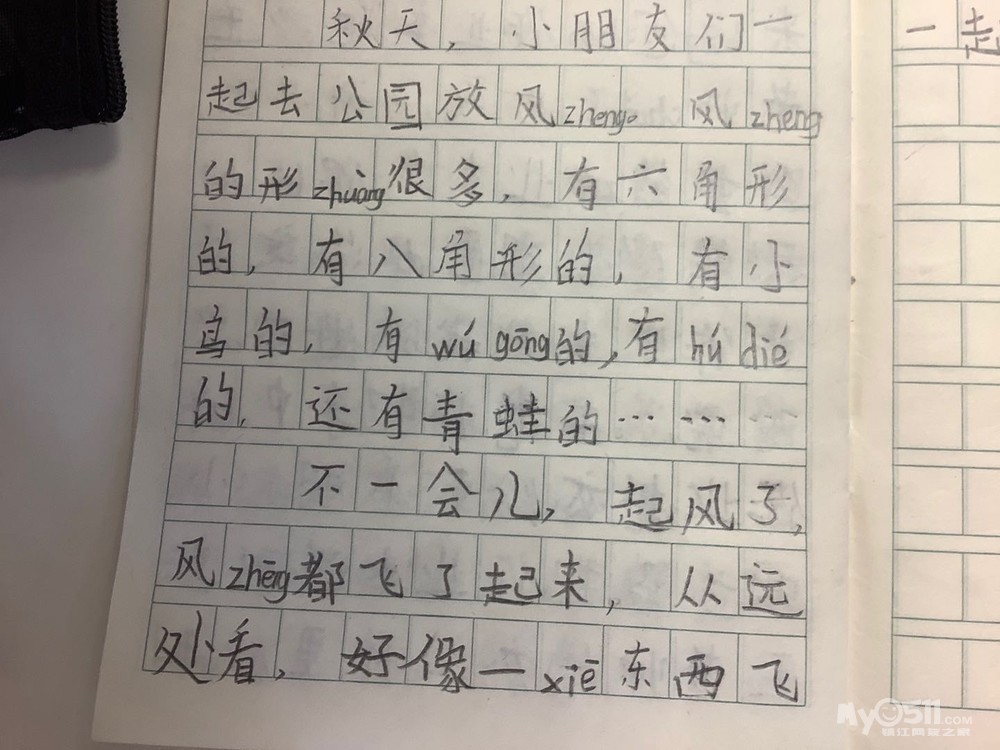 秋天，小朋友们一
起去公园放风zheng。风zheng
的形zhuàng很多，有六角形
的，有八角形的，有小
鸟的，有wú gōng的，有hú dié
的，还有青蛙的……
不一会儿，起风了，
风zhēng都飞了起来，从远
处看，好像一xiē东西飞
一起
My0511.COM
镇江网友之家